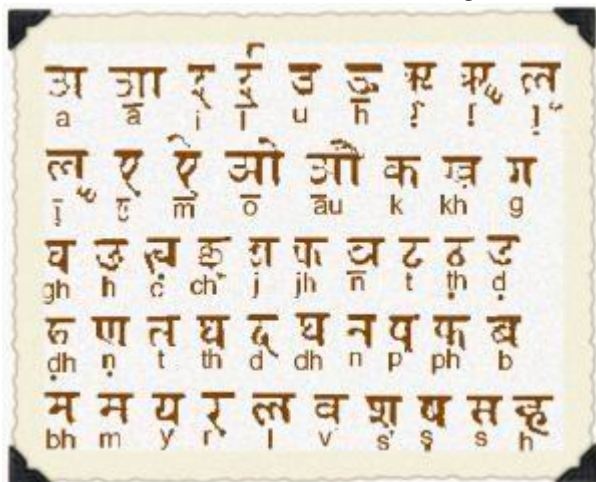 अ आ इ ई उ ऊ ऋ ॠ ऌ
a ā i ī u h ṛ ḷ
ए ऐ ओ औ क ख ग
m ō āu k kh g
घ ङ च छ ज झ ञ ट ठ ड
gh h c ch j jh n t ṭh ḍ
ढ ण त थ द ध न प फ ब
ḍh ṇ t th d dh n p ph b
म य र ल व श ष स ह
bh m y r l v s' ṣ s h